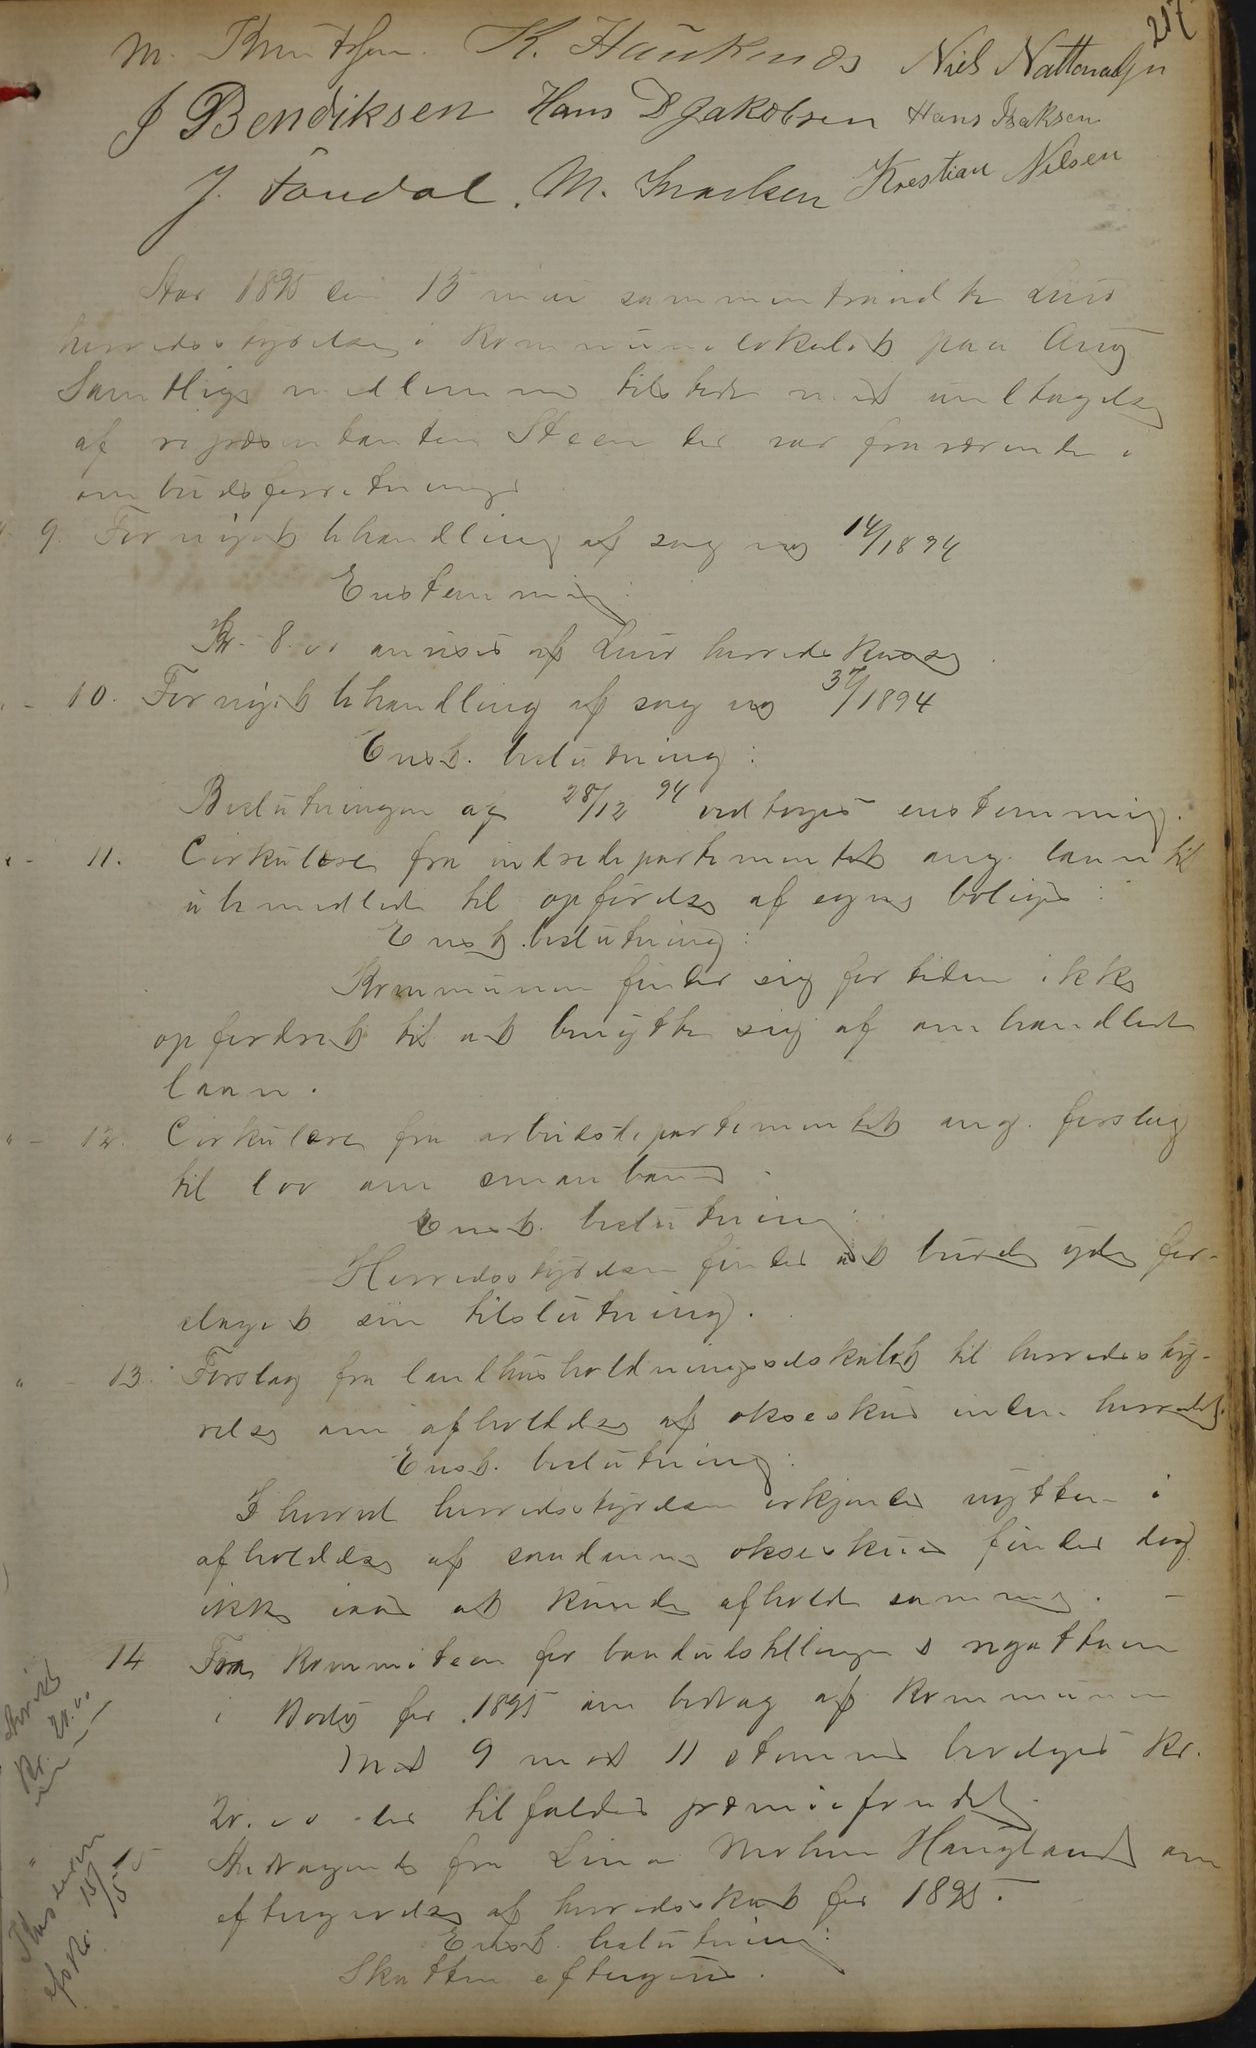 217
M. Knutsen. K. Haukenæs Niels Nattonælsen
J Bendiksen Hans D Jakobsen Hans Isaksen
J. Fondal. M. Knudsen Krestian Nilsen
Aar 1895 den 15 mai sammentraadte Lurø
herredsstyrelse i kommunelokalet paa Aug
Samtlige medlemmer tilstede med undtagelse
af repræsentanten Steen der var fraværende i
ombudsforretninger
9. Fornyet behandling af sag no 14/1894
Enstemmig:
Kr. 8.00 anvises af Lurø herredskasse.
10. Fornyet behandling af sag no 37/1894
Enst. beslutning:
Beslutningen af 28/12 94 vedtoges enstemmig.
11. Cirkulære fra indredepartementet ang. laan til
ubemidlede til opførelse af egne boliger:
Enst. beslutning:
Kommunen finder sig for tiden ikke
opfordret til at benytte sig af omhandlede
laan.
12. Cirkulære fra arbeidsdepartementet ang. forslag
til lov om smaabaner.
Enst. beslutning:
Herredsstyrelsen finder at burde yde for-
slaget sin tilslutning.
13. Forslag fra landhusholdningsselskabet til herredssty-
relse om afholdelse af okseskue inden herredet.
Enst. beslutning:
I hvorvel herredsstyrelsen erkjender nytten i
afholdelse af saadanne okseskuer finder dog
ikke iaar at kunde afholde samme. -
14 Fra kommiteen for baadudstillingen & regattaen
i Bodø for 1895 om bidrag af kommunen
Med 9 mod 11 stemmer bevilges kr.
20.00 der tilfalder præmiefondet.
Anvist
Kr. 20.00
15 Andragende fra Lina Mohns Haugland om
eftergivelse af herredsskat for 1895.
Enst. beslutning:
Skatten eftergives.
15/5